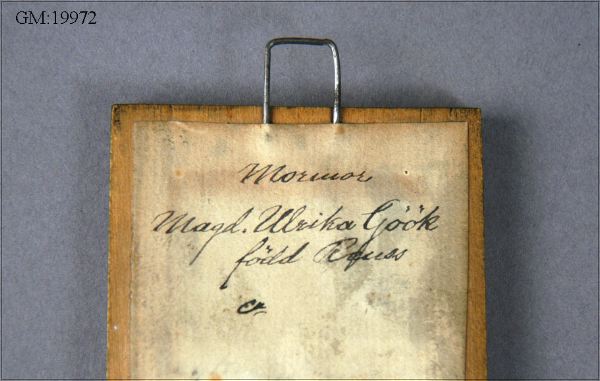 GM:19972
Mormor
Magd. Ulrika Göök
född